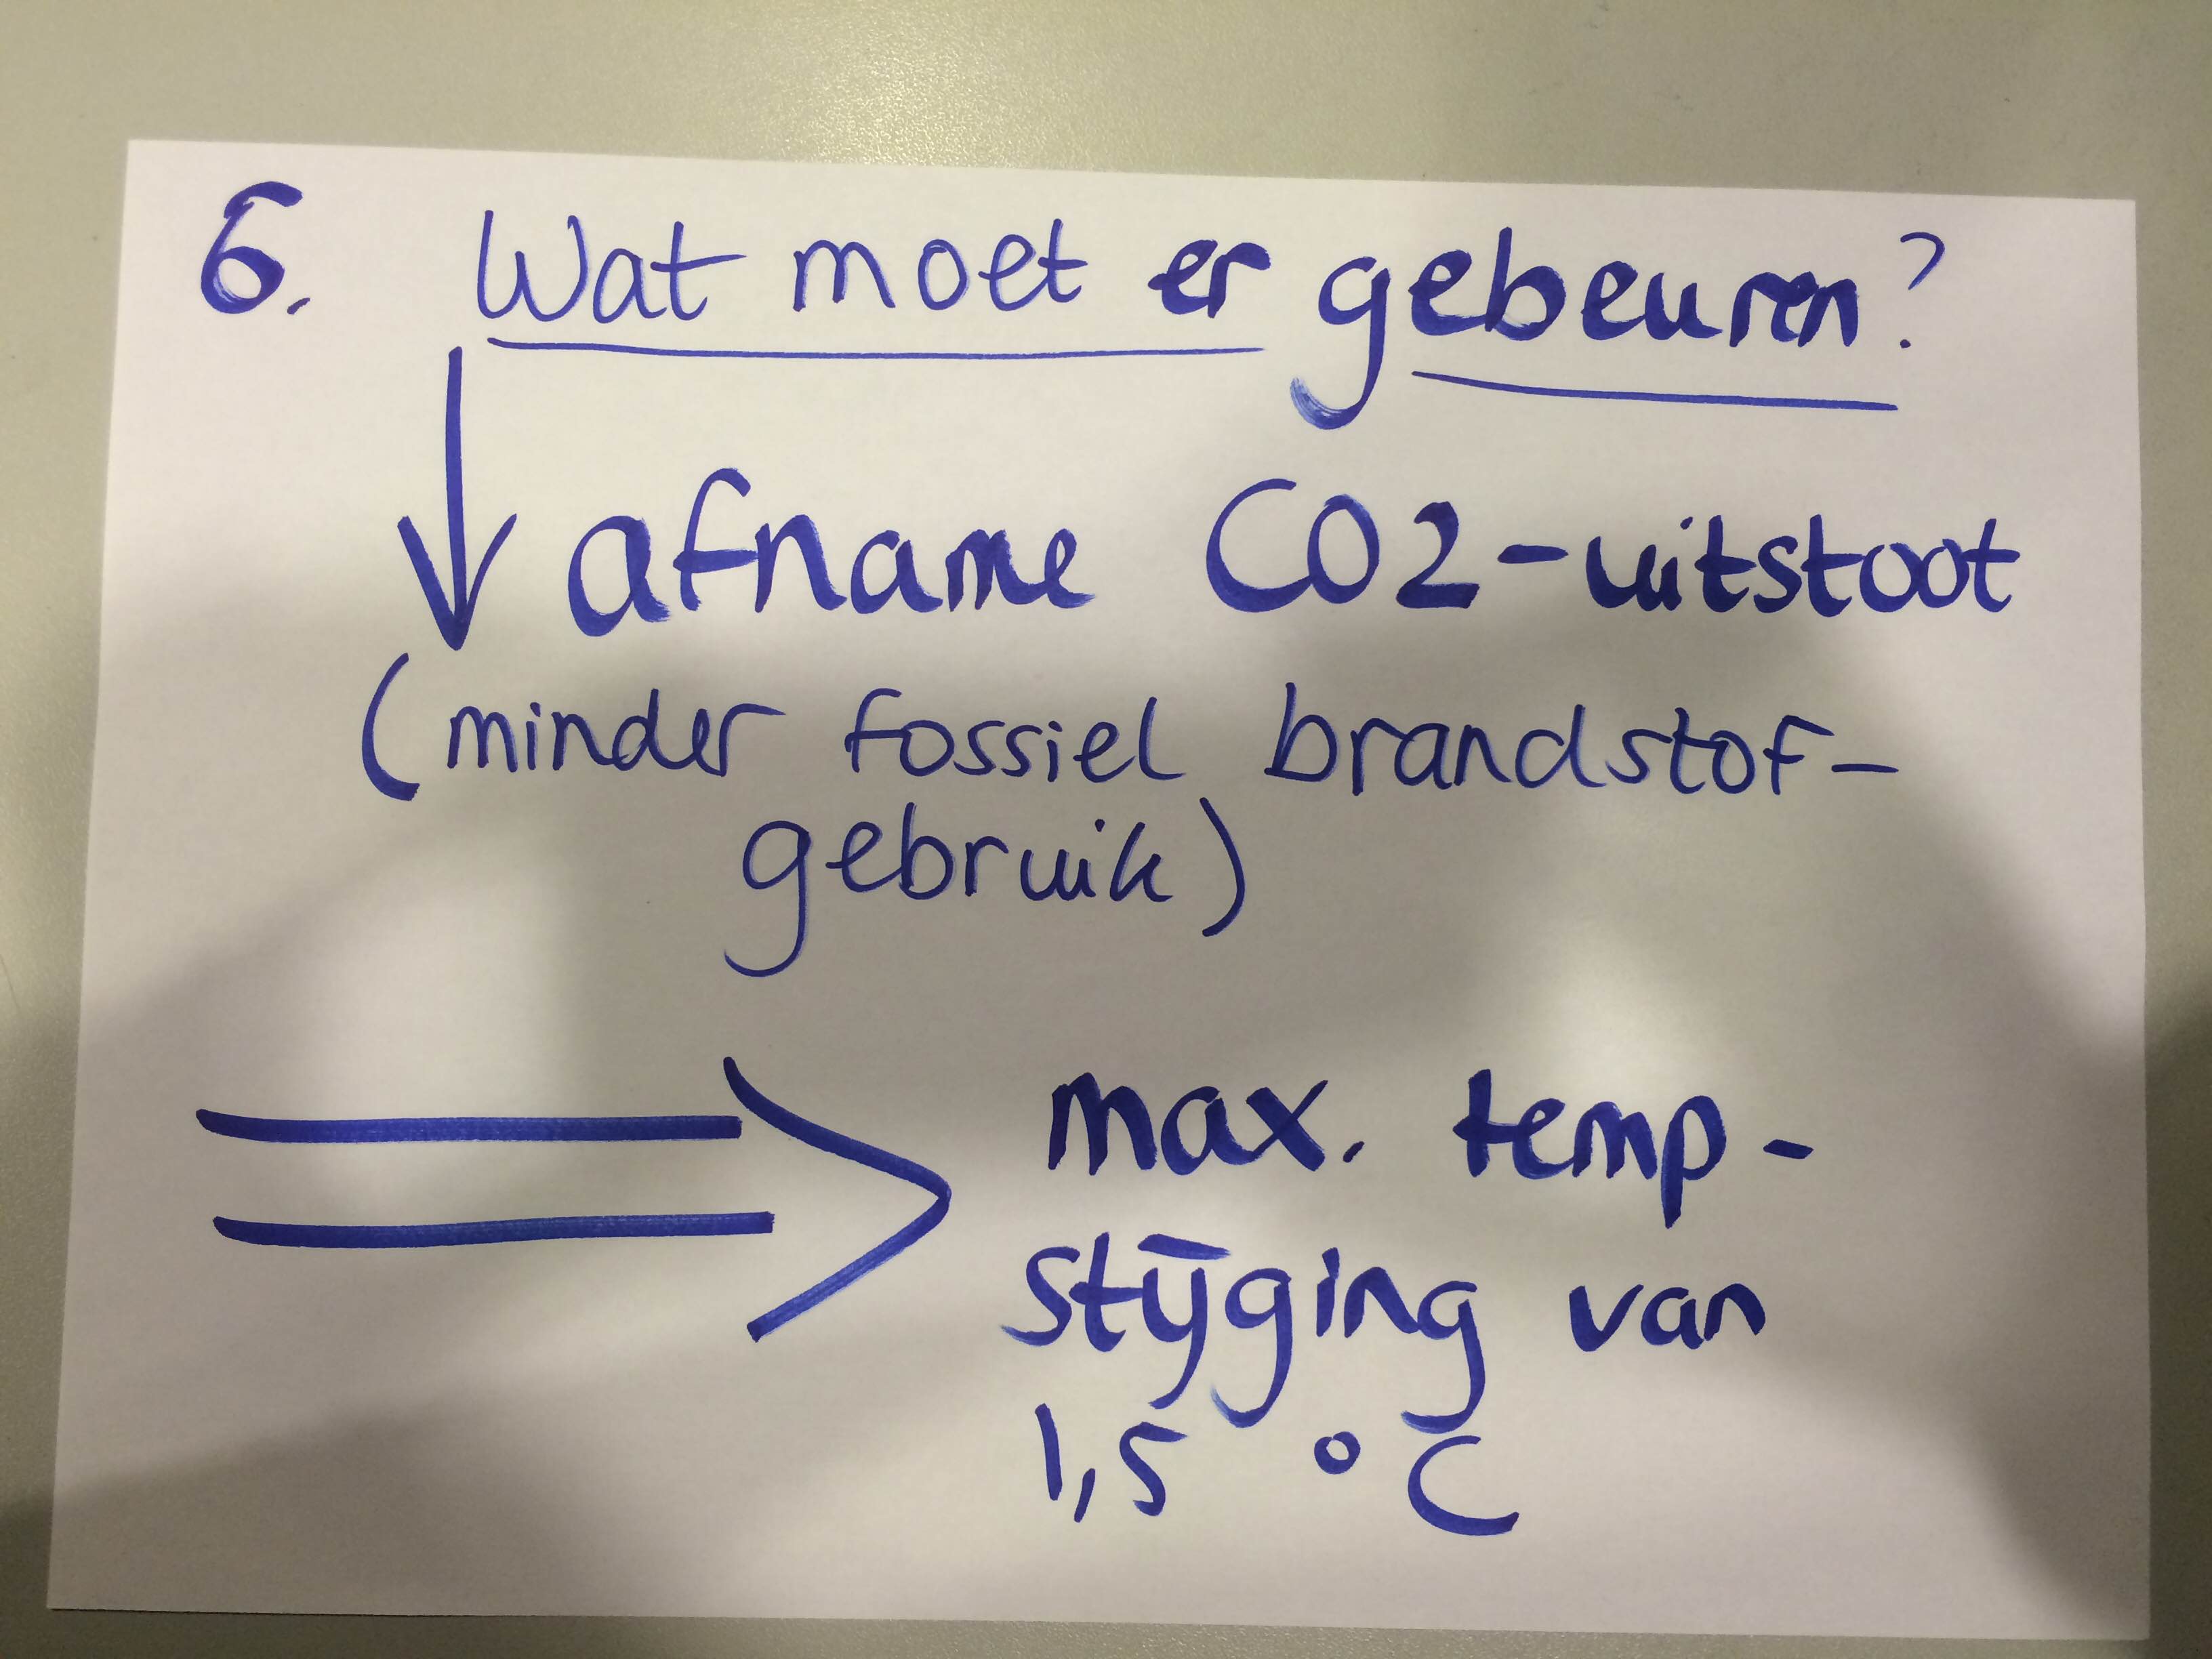 6. Wat moet er gebeuren?
afname CO2-uitstoot
(minder fossiel brandstof-
gebruik)
max. temp-
stijging van
1,5 °C